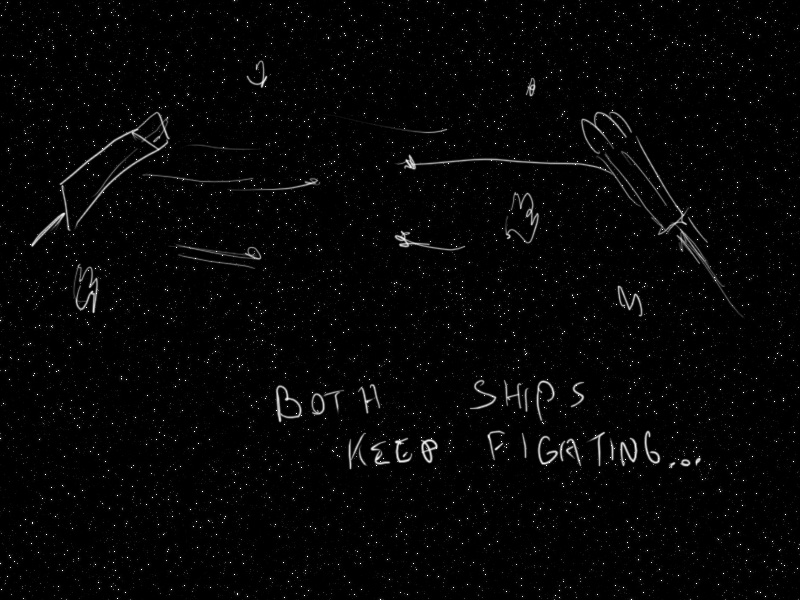 BOTH SHIPS
KEEP FIGATING...